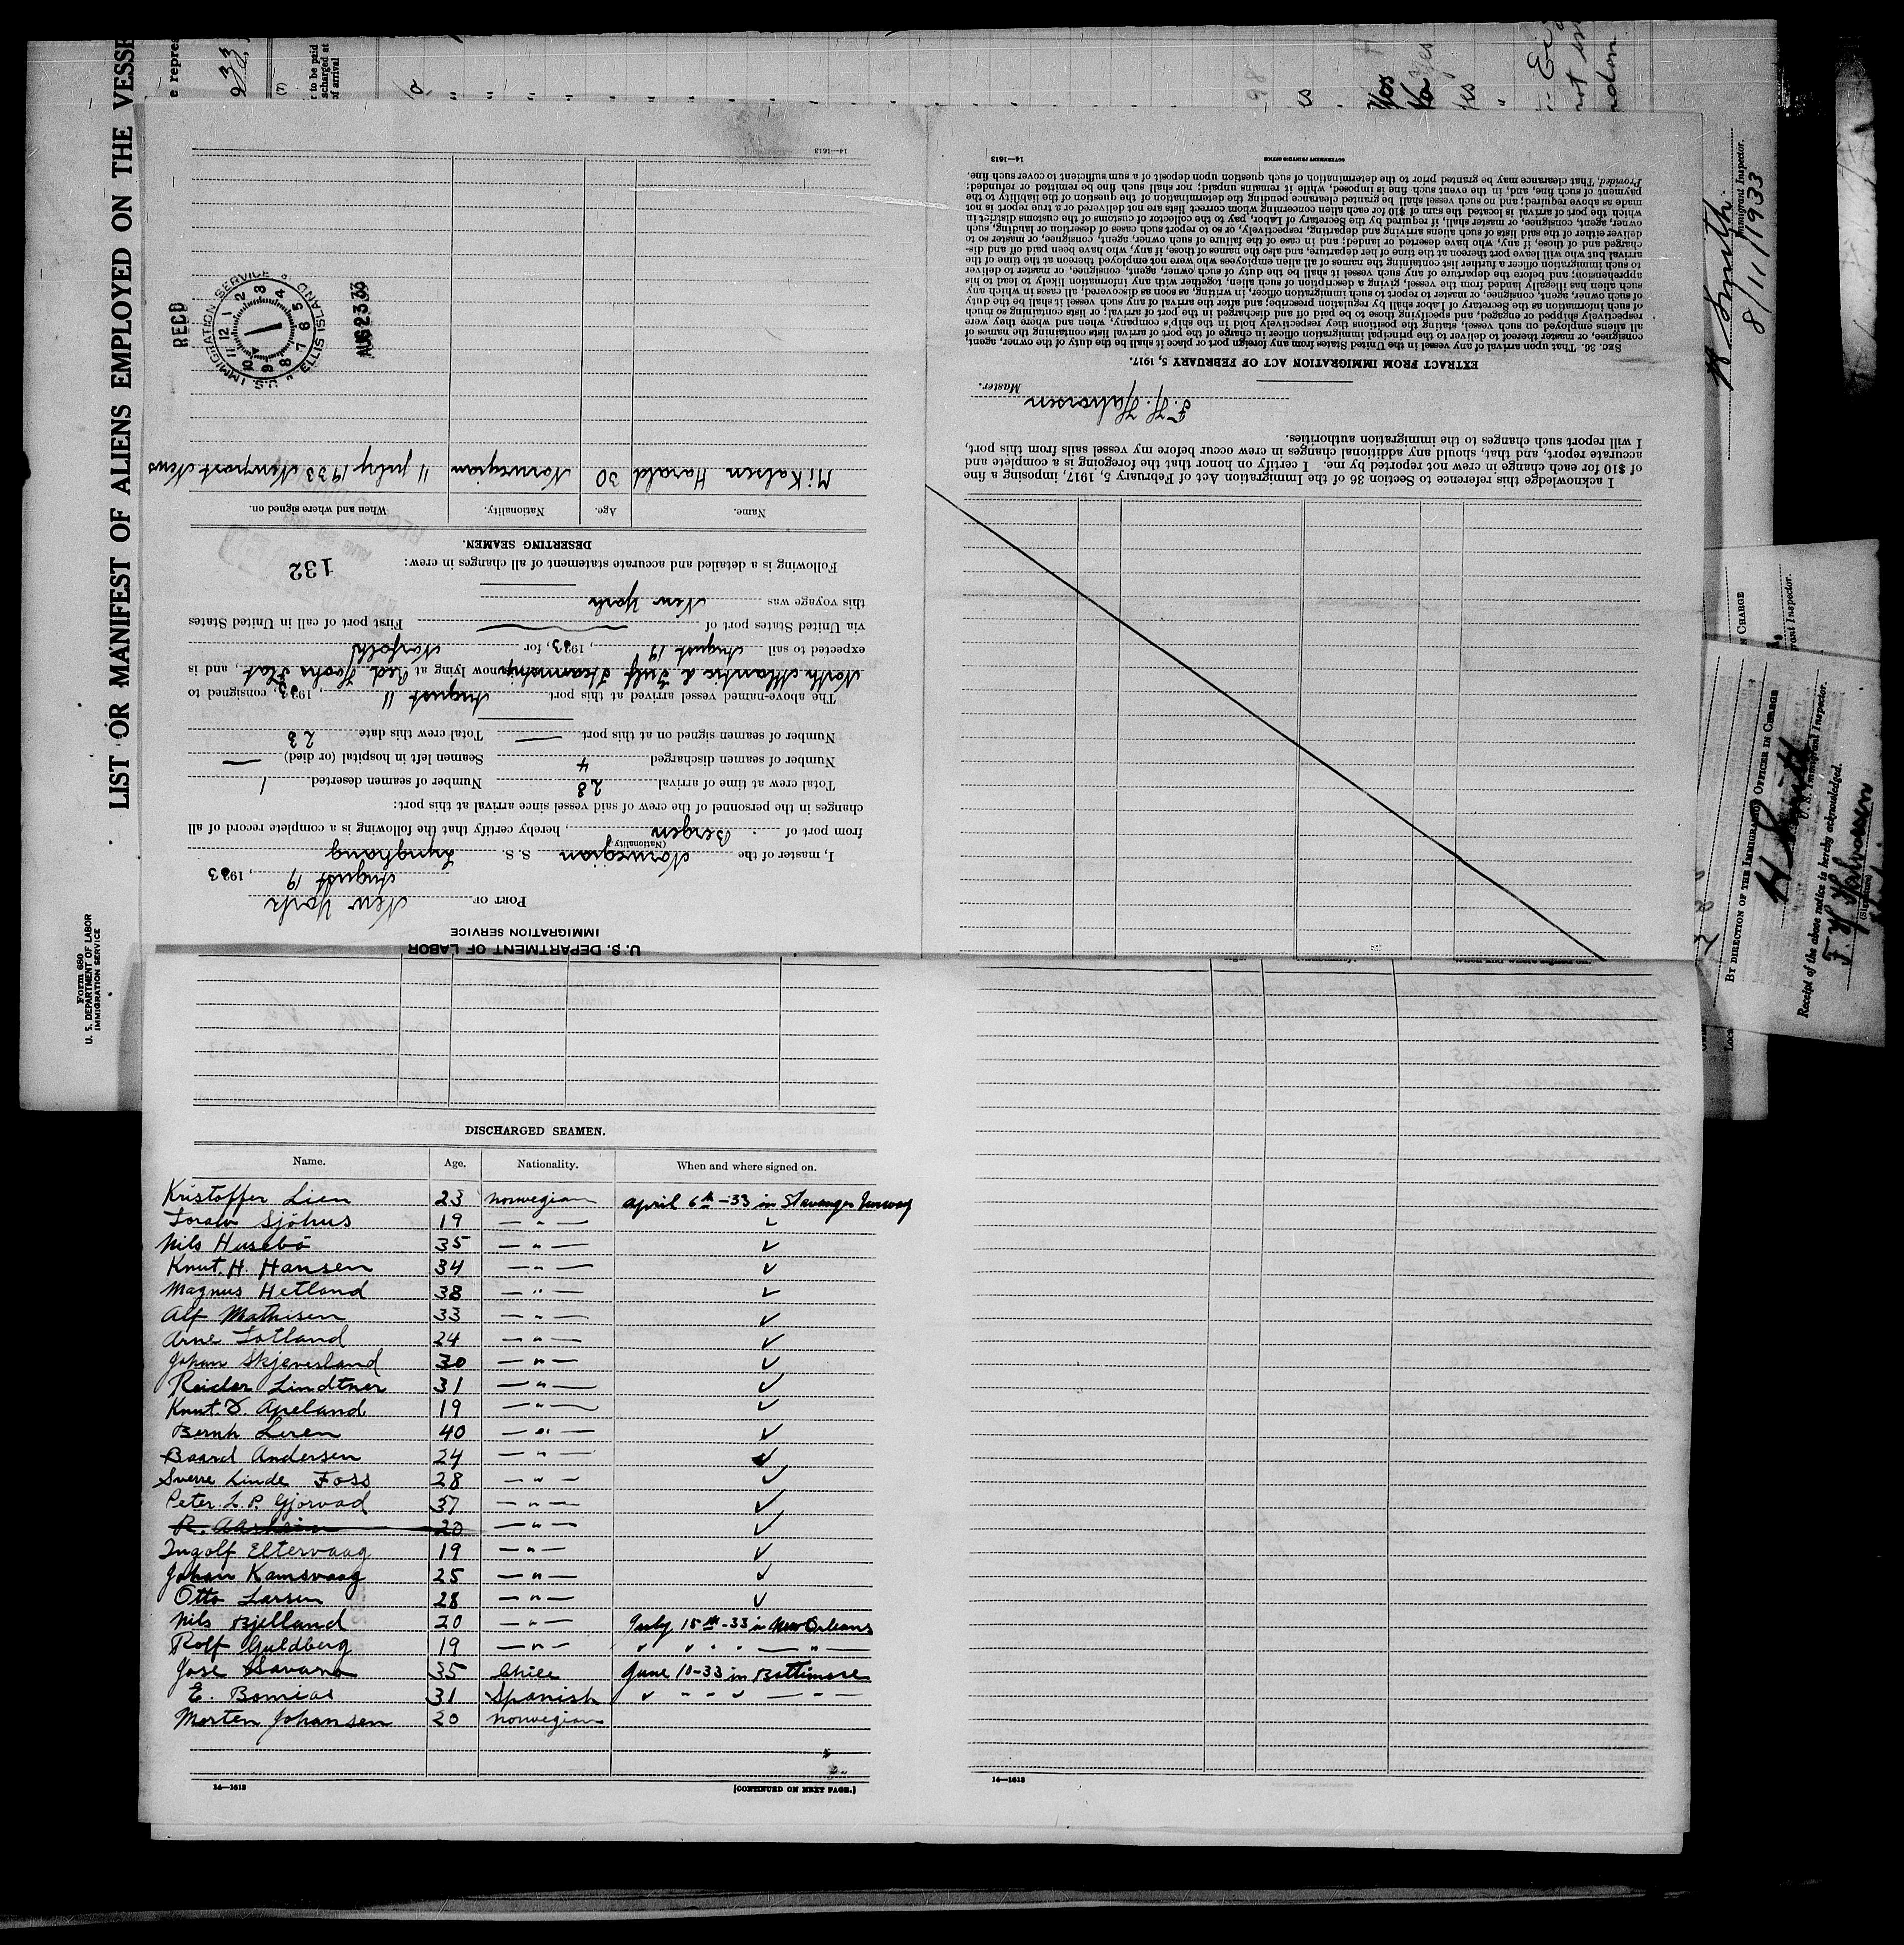 LIST OR MANIFEST OF ALIENS EMPLOYED ON THE VESSE
Form 680
U. S. DEPARTMENT OF LABOR
IMMIGRATION SERVICE
e repres
(7)
r to be paid
scharged at
of arrival
98
Yes
yes
not in
H Smith
Immigrant Inspector.
8/11/1933
N CHARGE
rant Inspector.
BY DIRECTION OF THE IMMIGRATION OFFICER IN CHARGE
H Smith
U. S. Immigrant Inspector.
Receipt of the above notice is hereby acknowledged.
F. H. Halvorsen
U. S. DEPARTMENT OF LABOR
IMMIGRATION SERVICE
PORT OF New York
August 19, 1933
I, master of the Norwegian S. S. Lynghaug
(Nationality)
from port of Bergen, hereby certify that the following is a complete record of all
changes in the personnel of the crew of said vessel since arrival at this port:
Total crew at time of arrival 28 Number of seamen deserted 1
Number of seamen discharged 4 Seamen left in hospital (or died) —
Number of seamen signed on at this port — Total crew this date 23
The above-named vessel arrived at this port August 11, 1933, consigned to
North Atlantic & Gulf Steamship now lying at Red Hooks Flat, and is
expected to sail August 19, 1933, for Norfolk
via United States port of — First port of call in United States
this voyage was New York
Following is a detailed and accurate statement of all changes in crew: 132
DESERTING SEAMEN.
Name. Age. Nationality. When and where signed on.
Mikalsen Harald 30 Norwegian 11 July 1933 Newport News
REC'D
U.S. IMMIGRATION SERVICE ELLIS ISLAND
12 1 2 3 4 5 6 7 8 9 10 11
AUG 23 33
14—1613
I acknowledge this reference to Section 36 of the Immigration Act of February 5, 1917, imposing a fine
of $10 for each change in crew not reported by me. I certify on honor that the foregoing is a complete and
accurate report, and that, should any additional changes in crew occur before my vessel sails from this port,
I will report such changes to the immigration authorities.
F. H. Halvorsen
Master.
EXTRACT FROM IMMIGRATION ACT OF FEBRUARY 5, 1917.
SEC. 36. That upon arrival of any vessel in the United States from any foreign port or place it shall be the duty of the owner, agent,
consignee, or master thereof to deliver to the principal immigration officer in charge of the port of arrival lists containing the names of
all aliens employed on such vessel, stating the positions they respectively hold in the ship's company, when and where they were
respectively shipped or engaged, and specifying those to be paid off and discharged in the port of arrival; or lists containing so much
of such information as the Secretary of Labor shall by regulation prescribe; and after the arrival of any such vessel it shall be the duty
of such owner, agent, consignee, or master to report to such immigration officer, in writing, as soon as discovered, all cases in which any
such alien has illegally landed from the vessel, giving a description of such alien, together with any information likely to lead to his
apprehension; and before the departure of any such vessel it shall be the duty of such owner, agent, consignee, or master to deliver
to such immigration officer a further list containing the names of all alien employees who were not employed thereon at the time of the
arrival but who will leave port thereon at the time of her departure, and also the names of those, if any, who have been paid off and dis-
charged and of those, if any, who have deserted or landed; and in case of the failure of such owner, agent, consignee, or master to so
deliver either of the said lists of such aliens arriving and departing, respectively, or so to report such cases of desertion or landing, such
owner, agent, consignee, or master shall, if required by the Secretary of Labor, pay to the collector of customs of the customs district in
which the port of arrival is located the sum of $10 for each alien concerning whom correct lists are not delivered or a true report is not
made as above required; and no such vessel shall be granted clearance pending the determination of the question of the liability to the
payment of such fine, and, in the event such fine is imposed, while it remains unpaid; nor shall such fine be remitted or refunded:
Provided, That clearance may be granted prior to the determination of such question upon deposit of a sum sufficient to cover such fine.
14—1613 GOVERNMENT PRINTING OFFICE
DISCHARGED SEAMEN.
Name. Age. Nationality. When and where signed on.
Kristoffer Lien 23 norwegian april 6th-33 in Stavanger Norway
Sjöhus 19 — " — ✓
Nils Husebö 35 — " — ✓
Knut. H. Hansen 34 — " — ✓
Magnus Hetland 38 — " — ✓
Alf Mathisen 33 — " — ✓
Arne Totland 24 — " — ✓
Johan Skjevesland 30 — " — ✓
Reidar Lindtner 31 — " — ✓
Knut. D. Apeland 19 — " — ✓
Bernh Leren 40 — " — ✓
Baard Andersen 24 — " — ✓
Sverre Linde Foss 28 — " — ✓
Peter L. P. Gjorvad 37 — " — ✓
R. Aarheim 20 — " — ✓
Ingolf Eltervaag 19 — " — ✓
Johan Kamsvaag 25 — " — ✓
Otto Larsen 28 — " — ✓
Nils Bjelland 20 — " — July 15th-33 in New Orleans
Rolf Guldberg 19 — " — " " " " — " —
Jose Navarro 35 Chile June 10-33 in Baltimore
E. Bomias 31 Spanish " " " " — " —
Morten Johansen 20 norwegian
14—1613 [CONTINUED ON NEXT PAGE.]
14—1613